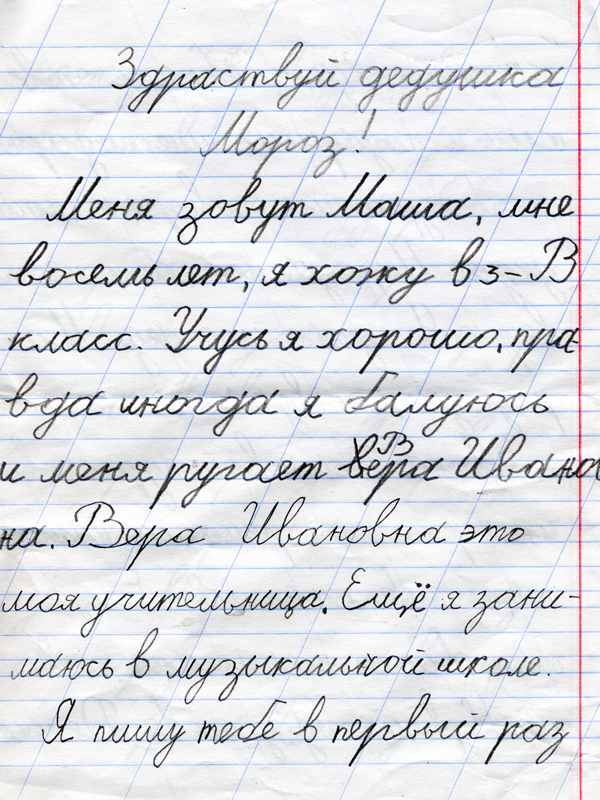 Здраствуй дедушка
Мороз!
Меня зовут Маша, мне
восемь лет, я хожу в 3-В
класс. Учусь я хорошо, пра-
вда иногда я балуюсь
и меня ругает Вера Ивано
на. Вера Ивановна это
моя учительница. Ещё я зани-
маюсь в музыкальной школе.
Я пишу тебе в первый раз